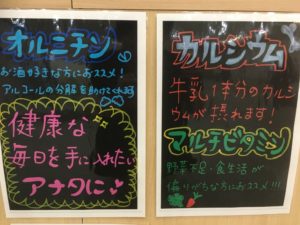 オルニチン
お酒好きな方におススメ!
アルコールの分解を助けてくれます
健康な
毎日を手に入れたい
アナタに
カルシウム
牛乳1本分のカルシ
ウムが摂れます!
マルチビタミン
野菜不足・食生活が
偏りがちな方におススメ!!!